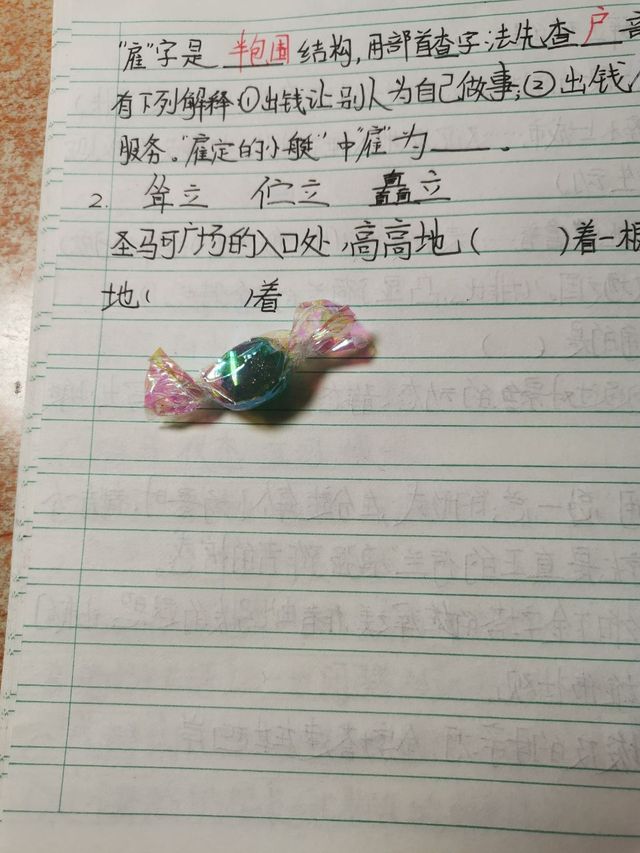 "雇"字是 半包围 结构,用部首查字法先查 户 音
有下列解释①出钱让别人为自己做事;②出钱
服务。"雇定的小艇"中"雇"为____。
2. 耸立 伫立 矗立
圣马可广场的入口处,高高地( )着一根
地( )着